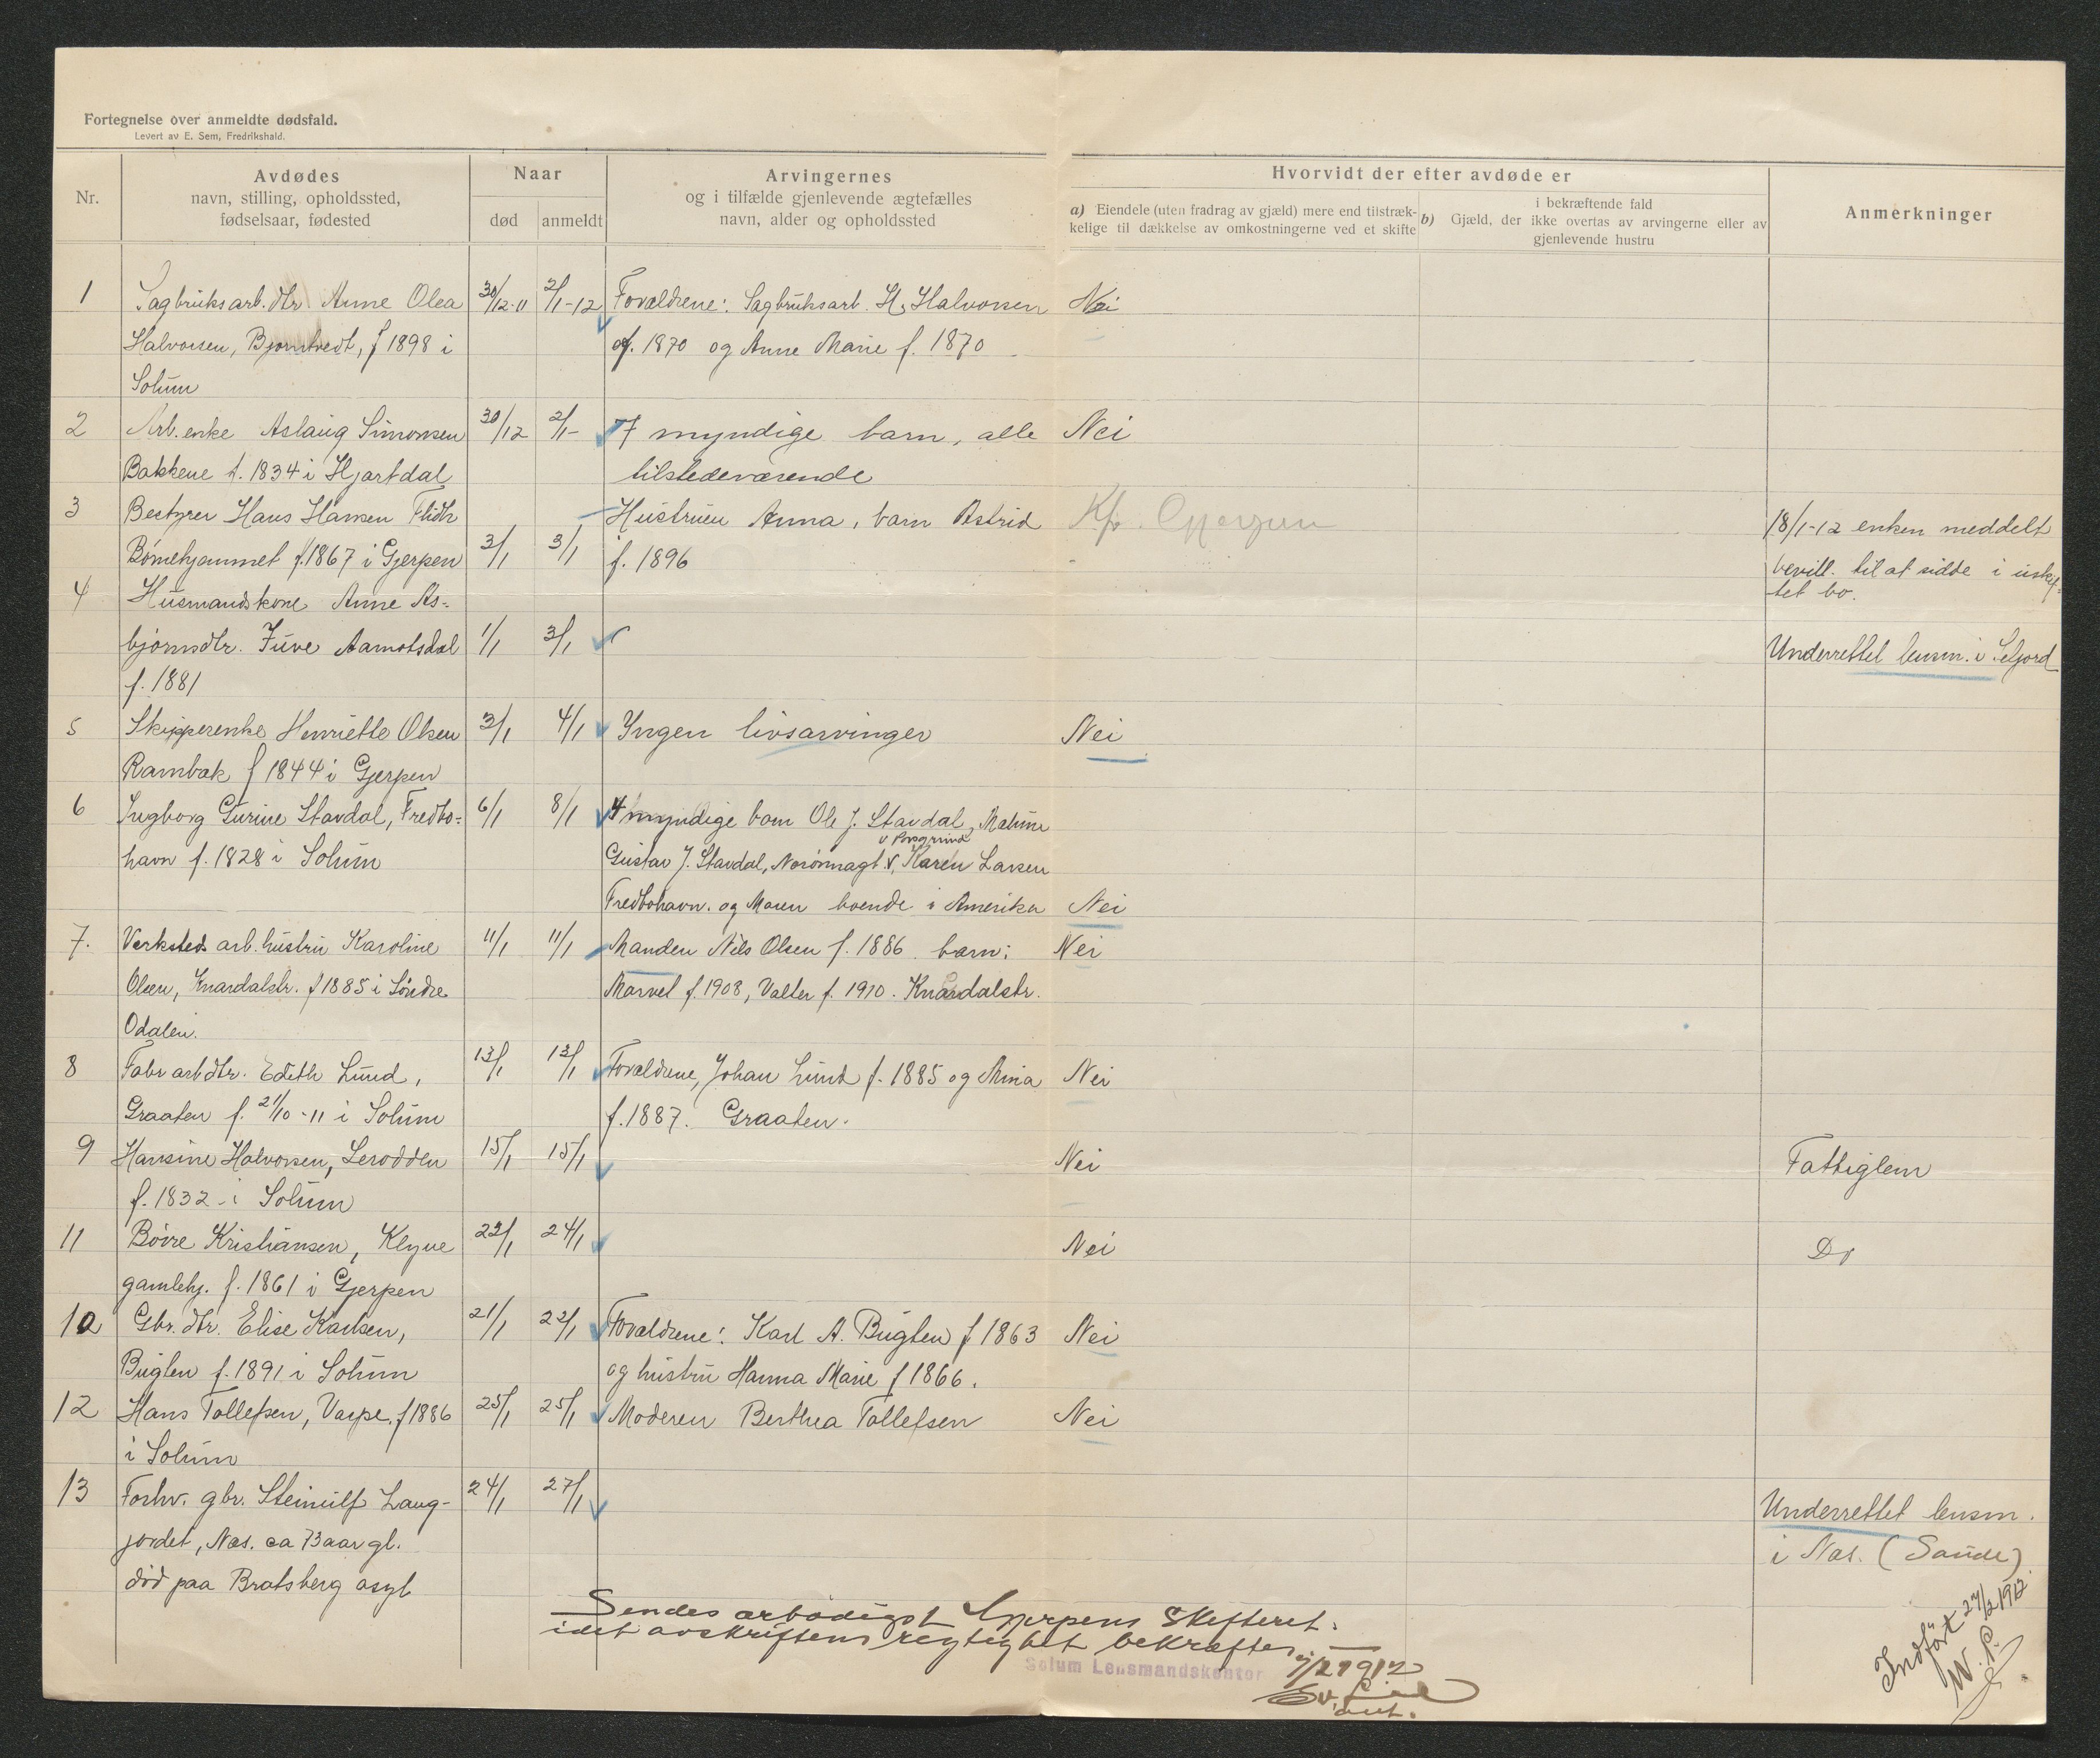 Fortegnelse over anmeldte dødsfald.
Levert av E. Sem, Fredrikshald.
Nr.
Avdødes
navn, stilling, opholdssted,
fødselsaar, fødested
Naar
død
anmeldt
Arvingernes
og i tilfælde gjenlevende ægtefælles
navn, alder og opholdssted
Hvorvidt der efter avdøde er
a) Eiendele (uten fradrag av gjæld) mere end tilstræk-
kelige til dækkelse av omkostningerne ved et skifte
i bekræftende fald
b) Gjæld, der ikke overtas av arvingerne eller av
gjenlevende hustru
Anmerkninger
1 Sagbruksarb. dtr Anne Olea 30/12-11 2/1-12 Forældrene: Sagbruksarb. H. Halvorsen Nei
Halvorsen, Bjørntvedt, f 1898 i f. 1870 og Anne Marie f. 1870
Solum
2 Arb. enke Aslaug Simonsen 30/12 2/1- 7 myndige barn, alle Nei
Bakkene f. 1834 i Hjartdal tilstedeværende
3 Bestyrer Hans Hansen Hustruen Anna, barn Astrid 18/1-12 enken meddelt
Børnehjemmet f. 1867 i Gjerpen 3/1 3/1 f. 1896 bevill. til at sidde i uskif-
tet bo.
4 Husmandskone Anne As-
bjørnsdtr. Juve Aamotsdal 1/1 3/1 Underrettet lensm. i Seljord
f. 1881
5 Skipperenke Henriette Olsen 3/1 4/1 Yngen livsarvinger Nei
Rambæk f 1844 i Gjerpen
6 Ingborg Gurine Stavdal, Fredbo- 6/1 8/1 4 myndige barn Ole J. Stavdal,
v Porsgrund
havn f. 1828 i Solum Gustav J. Stavdal, Karen Larsen
Fredbohavn. og Maren boende i Amerika Nei
7. Verksted arb. hustru Karoline 11/1 11/1 Manden Nils Olsen f. 1886. barn: Nei
Olsen, Knardalstr. f 1885 i Söndre Marvel f. 1908, Valter f. 1910. Knardalstr.
Odalen.
8 Fabr arb dtr. Edith Lund, 13/1 13/1 Forældrene, Johan Lund f. 1885 og Anna Nei
Graaten f. 21/10-11 i Solum f. 1887. Graaten.
9 Hansine Halvorsen, Lerodden 15/1 15/1 Nei Fattiglem
f. 1832 i Solum
11 Børre Kristiansen, Klyve 23/1 24/1 Nei Do
gamlehj. f. 1861 i Gjerpen
10 Gbr. dtr. Elise Karlsen, 21/1 22/1 Forældrene: Karl A. Bugten f 1863 Nei
Bugten f. 1891 i Solum og hustru Hanna Marie f 1866.
12 Hans Tollefsen, Varpe, f 1886 25/1 25/1 Moderen Berthea Tollefsen Nei
i Solum
13 Forhv. gbr. Steinulf Laug- 24/1 27/1 Underrettet lensm.
jordet, Næs. ca 73 aar gl. i Næs. (Saude)
död paa Bratsberg asyl
Sendes ærbødigst Gjerpens Skifteret.
idet avskriftens rigtighet bekræftes.
Solum Lensmandskontor 7/2 1912
Indført 27/2 1912.